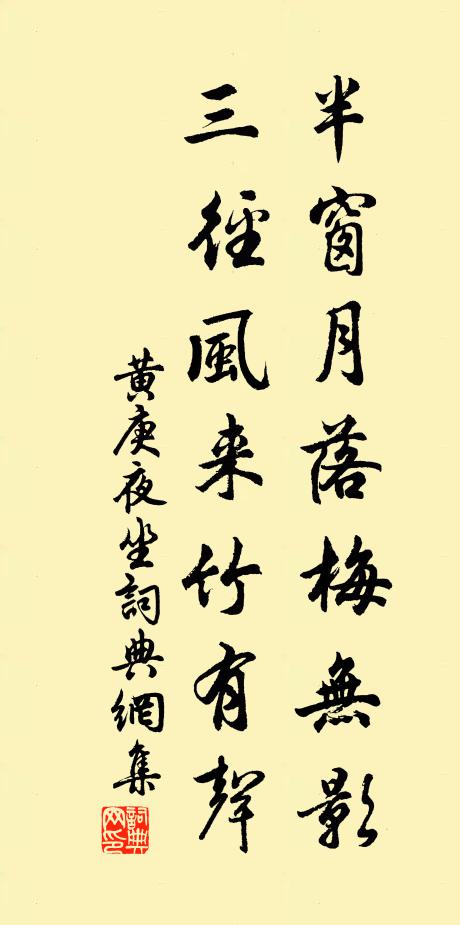 半窗月落梅無影
三徑風來竹有聲
黃庚夜坐詞典網集
詞典網印